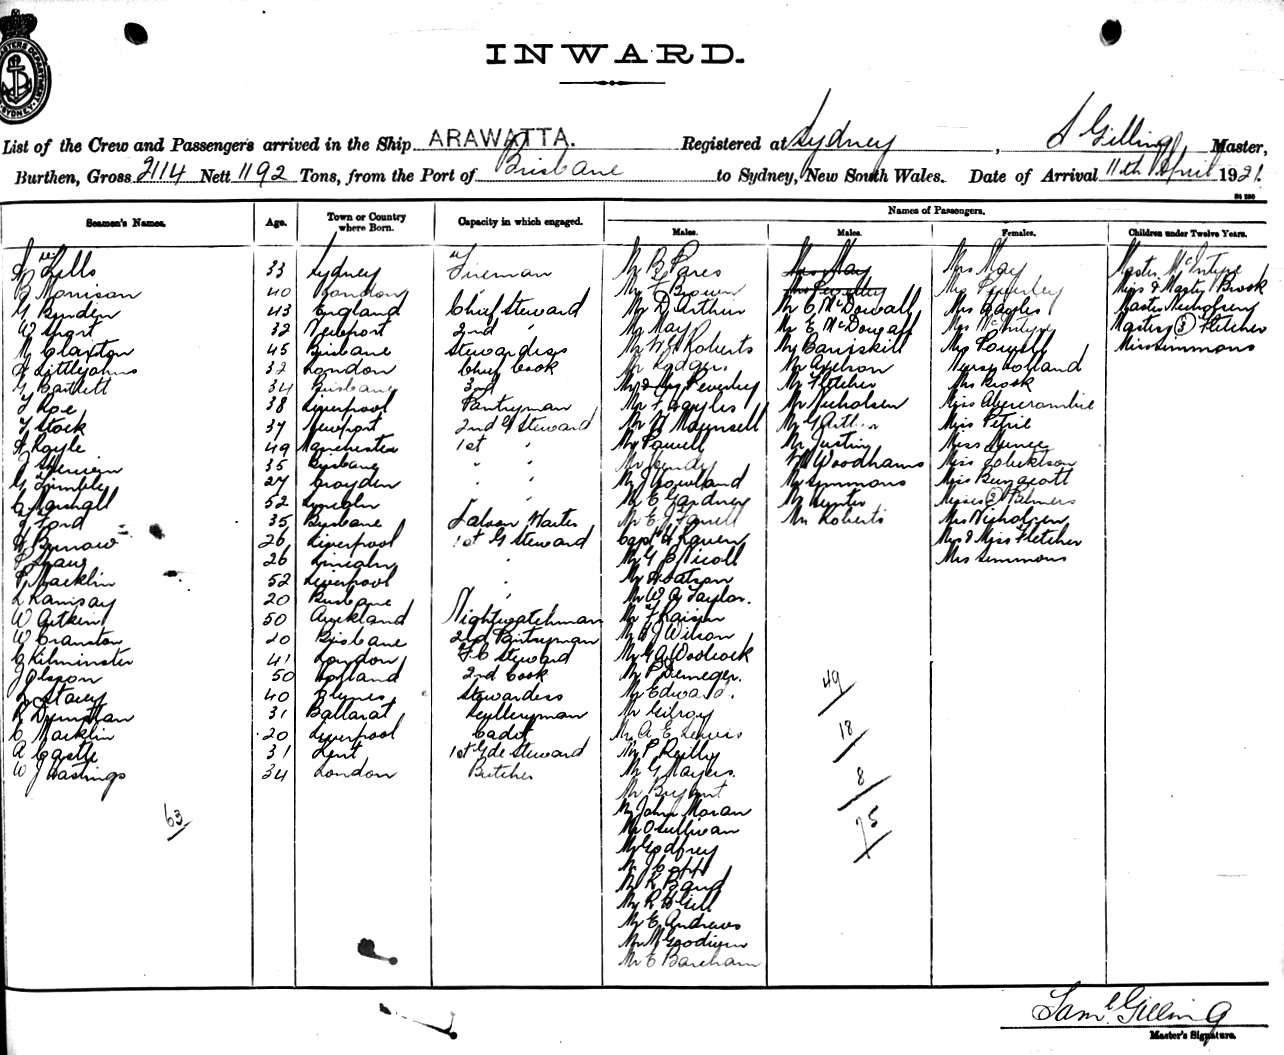 INWARD.
List of the Crew and Passengers arrived in the Ship ARAWATTA. Registered at Sydney, S Gilling Master,
Burthen, Gross 2114 Nett 1192 Tons, from the Port of Brisbane to Sydney, New South Wales. Date of Arrival 11th April 1921.
Seamen's Names. Age. Town or Country where Born. Capacity in which engaged. Names of Passengers.
Males. Males. Females. Children under Twelve Years.
33 Sydney Fireman Mr B Pares Mrs May Mrs May Master McIntyre
B Morrison 40 London Mr F Brown Mrs Peverley Mrs Peverley Miss & Master Brook
43 England Chief Steward Mr D Arthur Mr C McDowall Mrs Gayles Master Nicholsen
W Short 32 Newport 2nd " Mr May Mr E McDougall Mrs McIntyre Masters 3 Fletcher
Claxton 45 Brisbane Stewardess Mr W Roberts Mr Powell Miss Simmons
Littlejohns 32 London Chief Cook Mr Rodgers Nurse Holland
G Bartlett 34 Brisbane 3rd Mr & Mrs Peverley Mr Fletcher Mrs Brook
Roe 38 Liverpool Pantryman Mr F Gayles Mr Nicholsen Miss Abercrombie
Stock 37 Newport 2nd G Steward Mr Maunsell Mr G Miss Petrie
Royle 49 Manchester 1st " Mr Powell Mr Justins Miss
35 Brisbane " " Mr Hendy Mr Woodhams Miss Robertson
G Trimble 27 Croydon " " Mr J Rowland Mr Simmons Miss Bungcott
C Marshall 52 Lincoln Mr E Gardner Mr Hunter Misses 3 Palmers
Ford 35 Brisbane Saloon Waiter Mr E J Farrell Mr Roberts Mrs Nicholsen
26 Liverpool 1st G Steward Capt H Raven Mrs & Miss Fletcher
26 Lincoln " Mr G B Nicoll Mrs Simmons
Macklin 52 Liverpool " Mr Watson
L Ramsay 20 Brisbane " Mr W A Taylor.
W Aitkin 50 Auckland Nightwatchman Mr F Raisin
W Cranston 20 Brisbane 2nd Pantryman Mr J Wilson
C Kilminster 41 London F.C Steward Mr G A Woolcock
J Olsson 50 Holland 2nd Cook Mr P
Stacey 40 Stewardess Mr Edward.
R 31 Ballarat Scullery man Mr Gilroy
C Macklin 20 Liverpool Cadet Mr A E Lewis
A Castle 31 Kent 1st Gde Steward Mr P Reilly
W J Hastings 34 London Butcher Mr G Mayers.
Mr Bryant
Mr John Moran
Mr O'Sullivan
Mr Godfrey
Mr J Copp
Mr K Band
Mr R H Gill
Mr E Andrews
Mr M Goodwin
Mr E Bareham
63
49
18
8
75
Saml Gilling
Master's Signature.